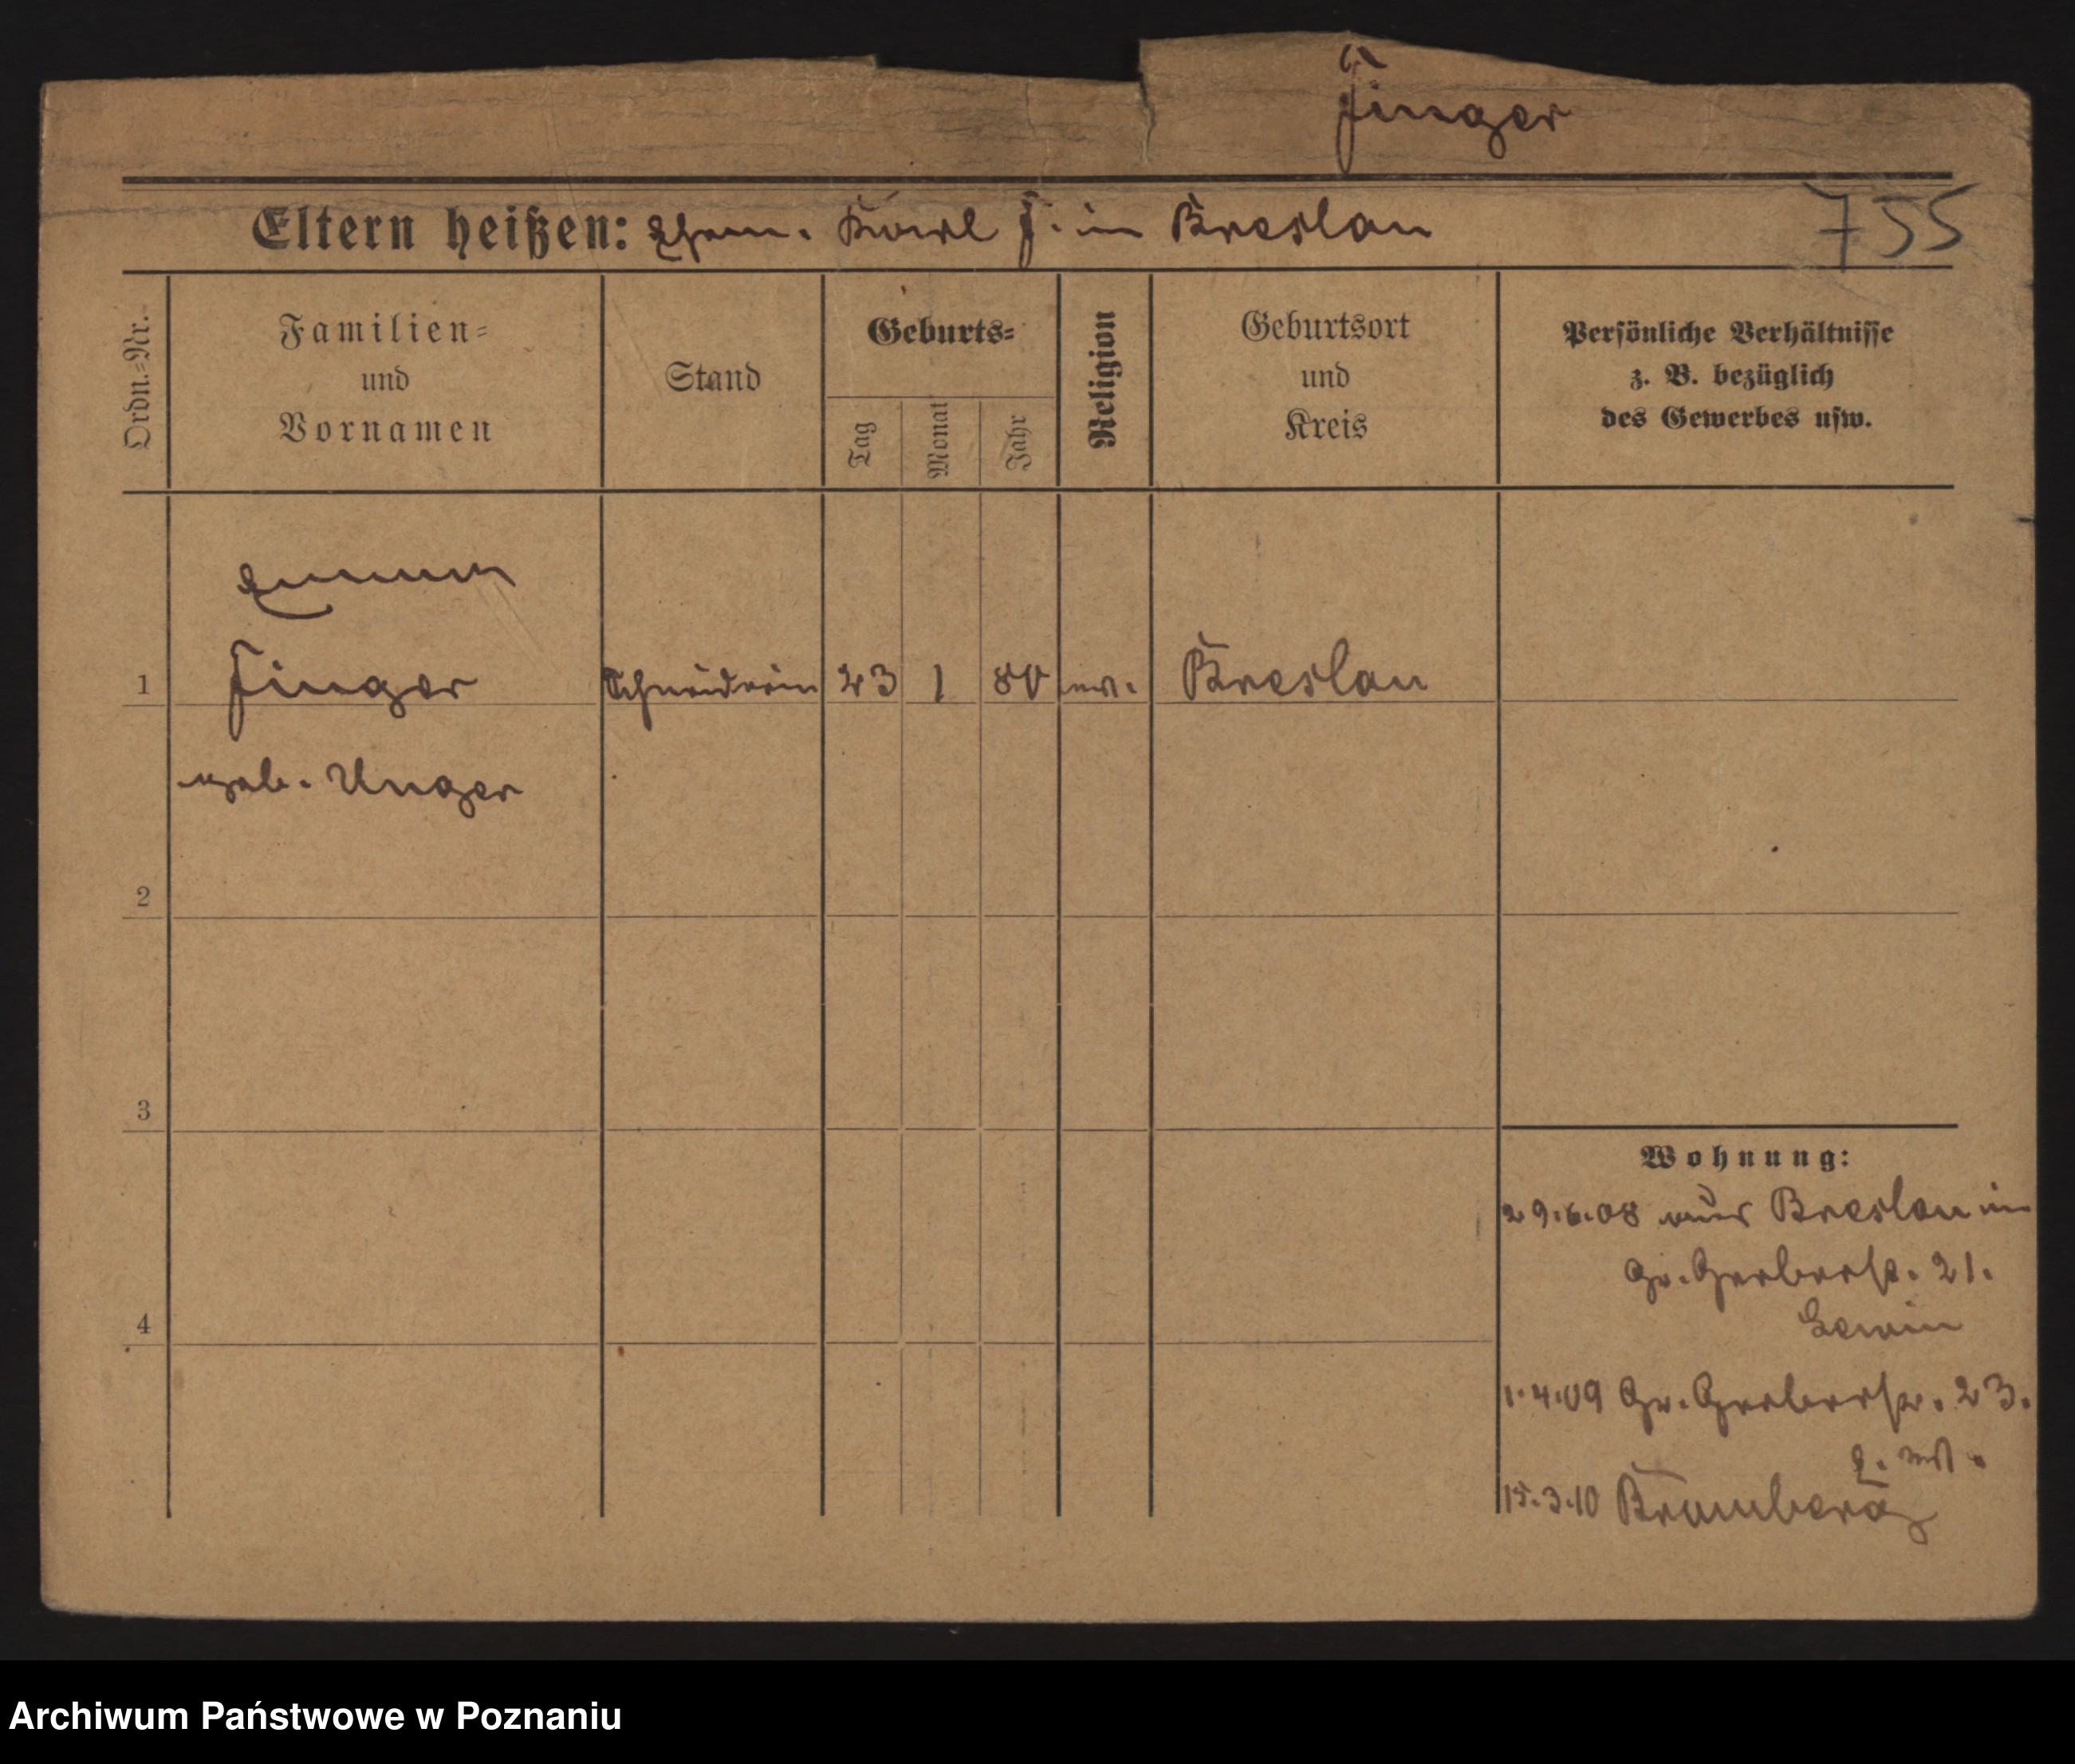 Finger
Eltern heißen: Ehem. Karl F. in Breslau
755
Ordn.=Nr.
Familien=
und
Vornamen
Stand
Geburts=
Tag
Monat
Jahr
Religion
Geburtsort
und
Kreis
Persönliche Verhältnisse
z. B. bezüglich
des Gewerbes usw.
Emma
1 Finger Schneiderin 23 1 80 ev. Breslau
geb. Unger
2
3
4
Wohnung:
29.6.08 aus Breslau in
Gr. Gerberstr. 21.
Lewin
1.4.09 Gr. Gerberstr. 23.
15.3.10 Bromberg
Archiwum Państwowe w Poznaniu